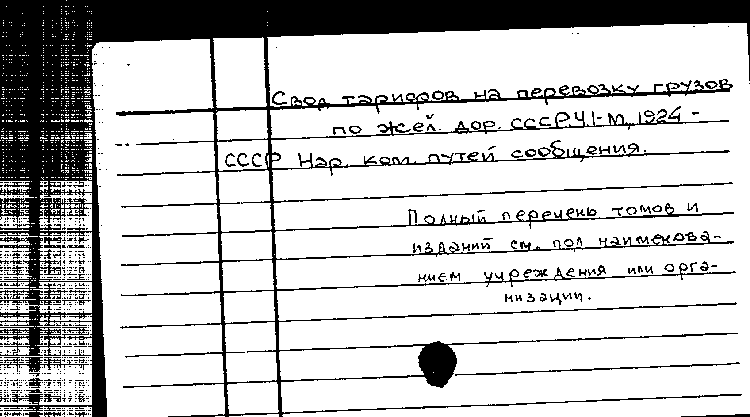 Свод тарифов на перевозку грузов
по жел. дор. СССР. Ч. I - М., 1924 -
СССР Нар. ком. путей сообщения.
Полный перечень томов и
изданий см. под наименова-
нием учреждения или орга-
низации.